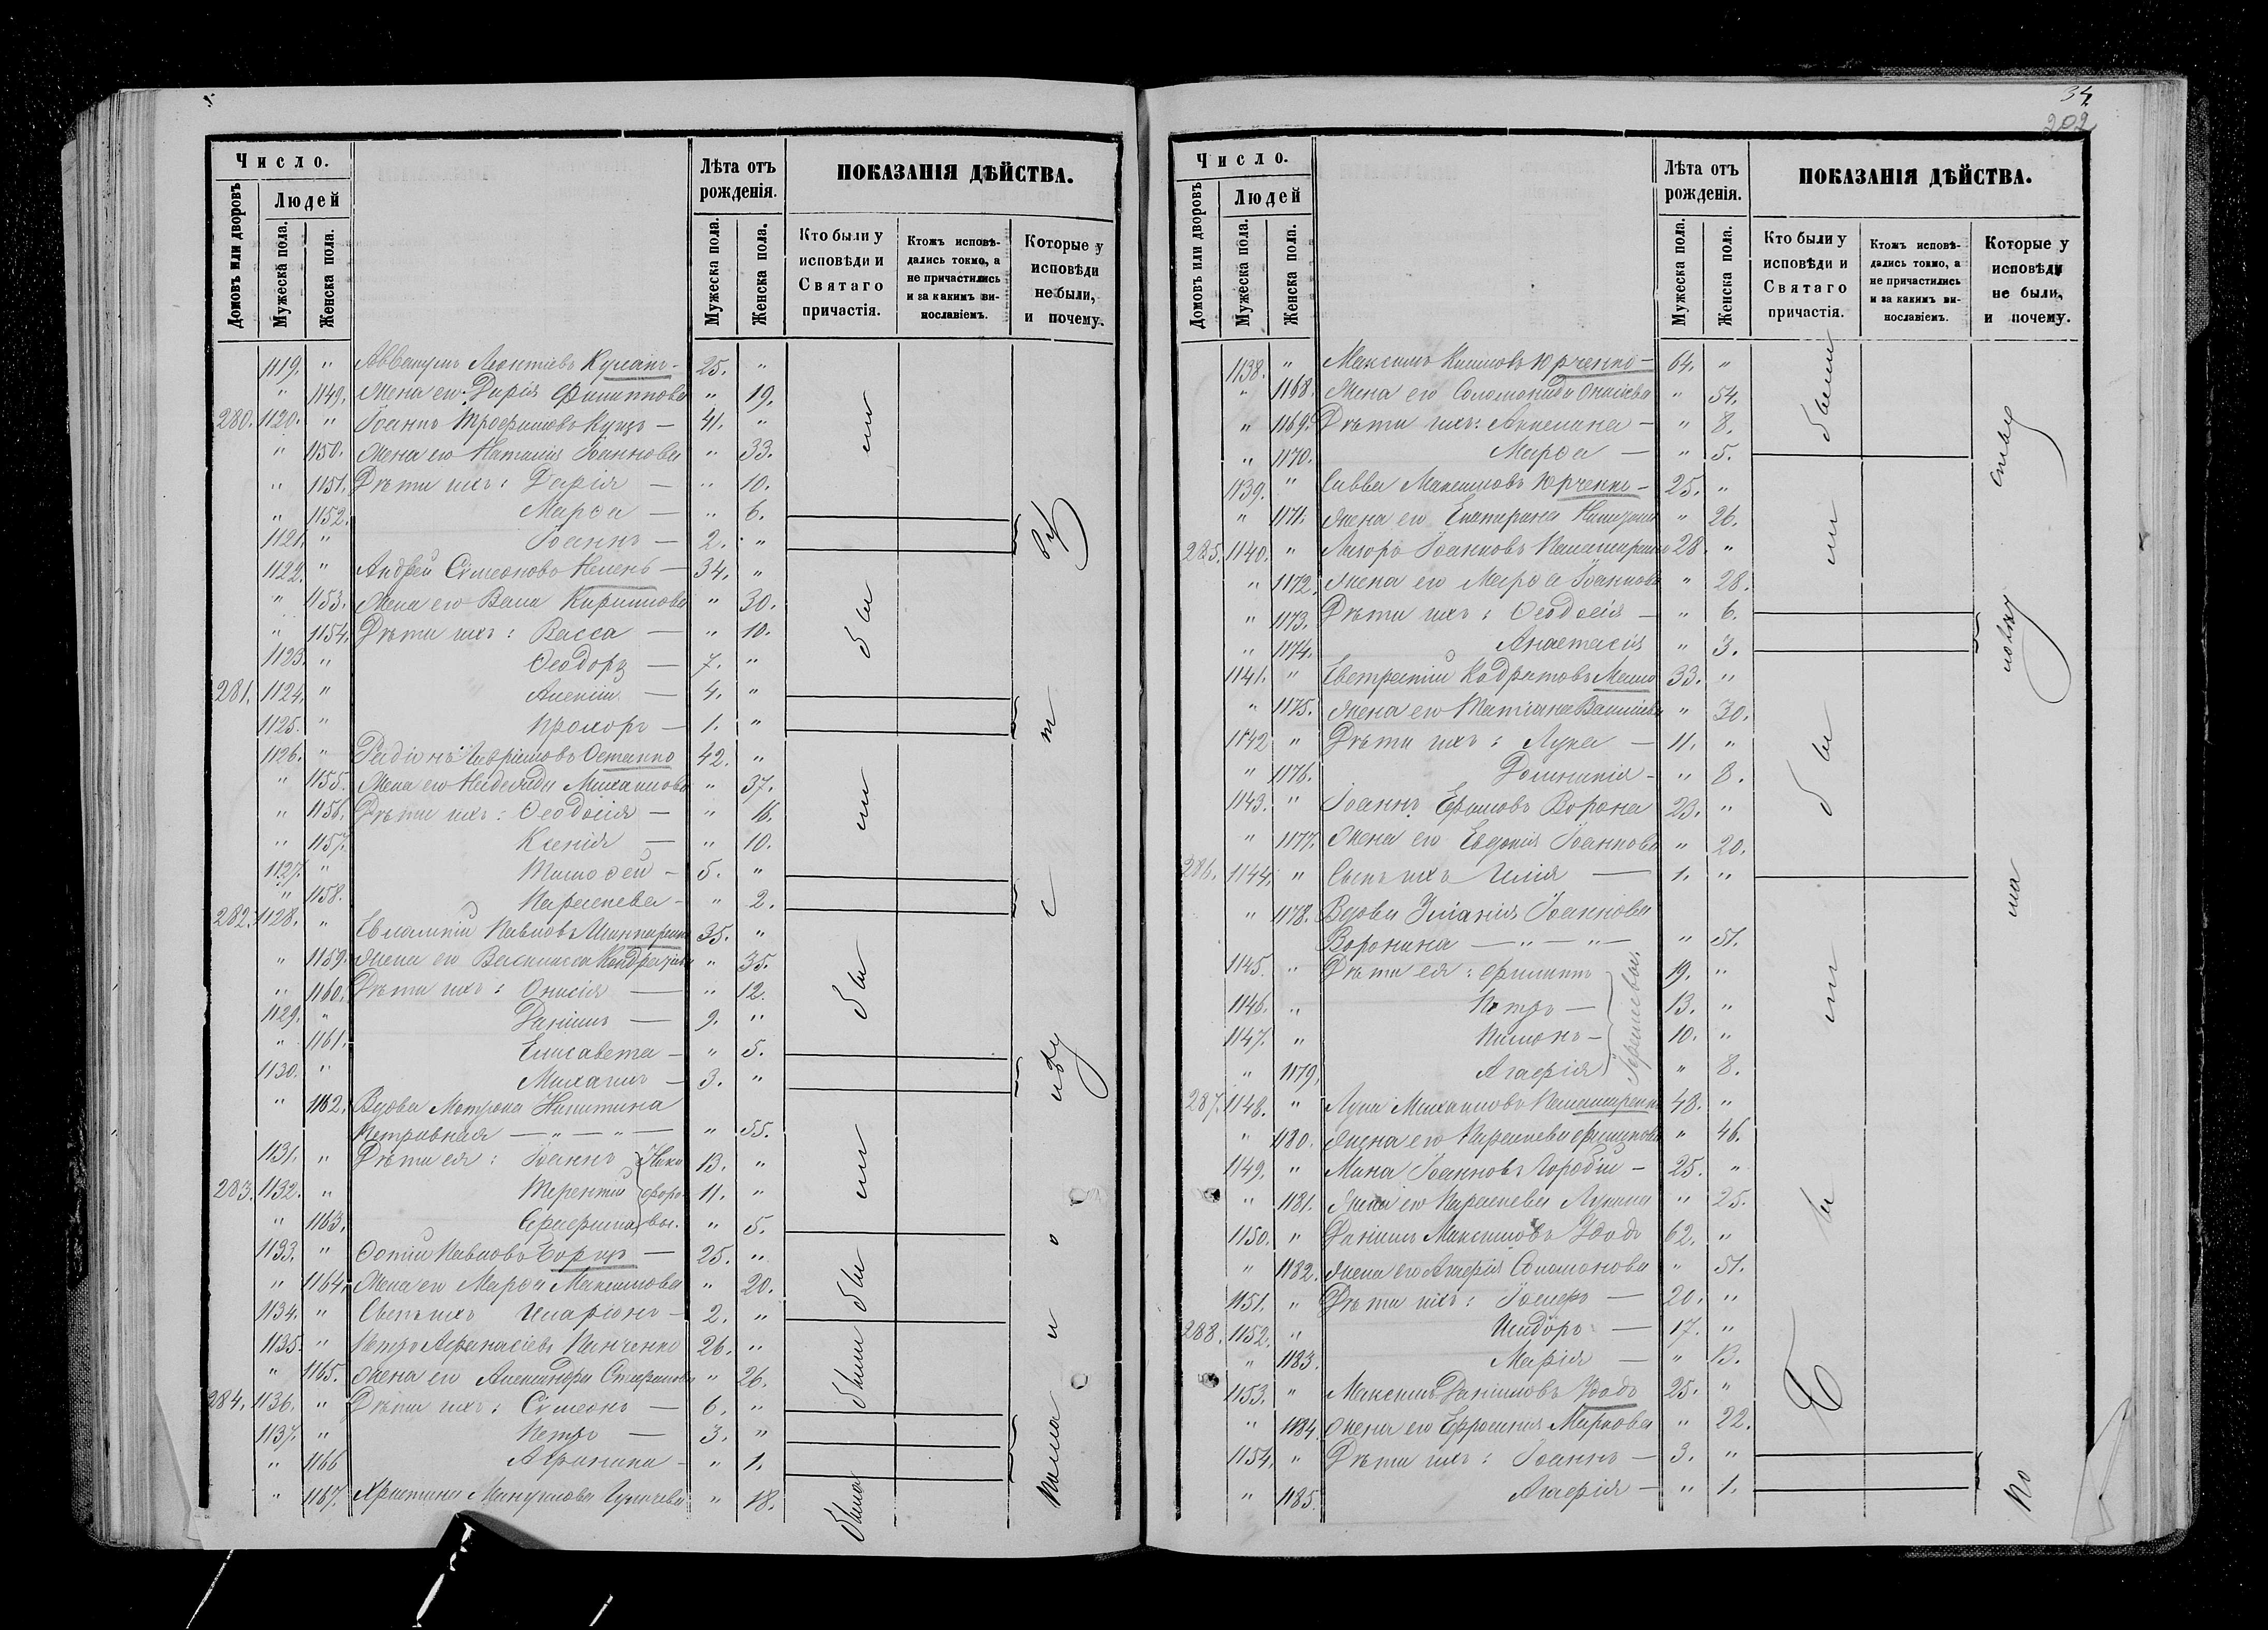 Число.
Домовъ или дворовъ
Людей
Мужеска пола.
Женска пола.
Лѣта отъ рожденія.
Мужеска пола.
Женска пола.
ПОКАЗАНІЯ ДѢЙСТВА.
Кто были у исповѣди и Святаго причастія.
Ктожъ исповѣдались токмо, а не причастились и за какимъ винословіемъ.
Которые у исповѣди не были, и почему.
1119. " Аввакумъ Леонтіевъ 25. "
" 1149. Жена его Дарія Филиппова " 19.
280. 1120. " Іоаннъ Трофимовъ Куцъ — 41. "
" 1150. Жена его Наталія Іоаннова " 33.
" 1151. Дѣти ихъ: Дарія — " 10.
" 1152. Марѳа — " 6.
1121. " Іоаннъ — 2. "
1122. " Андрей Сѵмеоновъ — 34. "
" 1153. Жена его Кириллова " 30.
" 1154. Дѣти ихъ: Васса — " 10.
1123. " Ѳеодоръ — 7. "
281. 1124. " Алексій — 4. "
1125. " Прохоръ — 1. "
1126. " Родіонъ Гавріиловъ Остапко 42. "
" 1155. Жена его Надежда Михаилова " 37.
" 1156. Дѣти ихъ: Ѳеодосія — " 16.
" 1157. Ксенія — " 10.
1127. " Тимоѳей — 5. "
" 1158. Параскева — " 2.
282. 1128. " Евлампій Павловъ 35. "
" 1159. Жена его Василисса " 35.
" 1160. Дѣти ихъ: Онисія — " 12.
1129. " Даніилъ — 9. "
" 1161. Елисавета — " 5.
1130. " Михаилъ — 3. "
" 1162. Вдова Матрона Никитина
Петровная — " — " — " 55.
1131. " Дѣти ея: Іоаннъ 13. "
283. 1132. " Терентій 11. "
" 1163. Агафина " 5.
1133. " Ѳотій Павловъ Борщъ — 25. "
" 1164. Жена его Марѳа Максимова " 20.
1134. " Сынъ ихъ Иларіонъ — 2. "
1135. " Петръ Аѳанасіевъ Панченко 26. "
" 1165. Жена его Александра Стефанова " 26.
284. 1136. " Дѣти ихъ: Сѵмеонъ — 6. "
1137. " Петръ — 3. "
" 1166 — " 1.
" 1167. Христина Мануилова " 18.
были
была
34.
202
Число.
Домовъ или дворовъ
Людей
Мужеска пола.
Женска пола.
Лѣта отъ рожденія.
Мужеска пола.
Женска пола.
ПОКАЗАНІЯ ДѢЙСТВА.
Кто были у исповѣди и Святаго причастія.
Ктожъ исповѣдались токмо, а не причастились и за какимъ винословіемъ.
Которые у исповѣди не были, и почему.
1138. " Максимъ Юрченко — 64. "
" 1168. Жена его Соломонида Онисіева " 54.
" 1169. Дѣти ихъ: Акилина — " 8.
" 1170. Марѳа — " 5.
1139. " Савва Максимовъ Юрченко — 25. "
" 1171. Жена его Екатерина " 26.
285. 1140. " Іоанновъ 28 "
" 1172. Жена его Марѳа Іоаннова " 28.
" 1173. Дѣти ихъ: Ѳеодосія — " 6.
" 1174. Анастасія " 3.
1141. " Евстратій Кодратовъ 33. "
" 1175. Жена его Татіана " 30.
1142 " Дѣти ихъ: Лука — 11. "
" 1176. Домникія — " 8.
1143. " Іоаннъ Ефимовъ Ворона 23. "
" 1177. Жена его Евдокія Іоаннова " 20.
286. 1144. " Сынъ ихъ Илія — 1. "
" 1178. Вдова Іуліанія Іоаннова
Воронина — " — " — " 51.
1145. " Дѣти ея: Филиппъ 19. "
1146. " Петръ — 13. "
1147. " — 10. "
" 1179. Агафія " 8.
287. 1148. " Лука Михаиловъ 48. "
" 1180. Жена его Параскева Филиппова " 46.
1149. " Мина Іоанновъ Горобій — 25. "
" 1181. Жена его Параскева Лукина " 25.
1150. " Даніилъ Максимовъ Удодъ 62. "
" 1182. Жена его Агафія Соломонова " 51.
1151. " Дѣти ихъ: Іосифъ — 20. "
288. 1152. " Исидоръ — 17. "
" 1183. Марія — " 13.
1153. " Максимъ Даніиловъ Удодъ 25. "
" 1184. Жена его Ефросинія Маркова " 22.
1154. " Дѣти ихъ: Іоаннъ — 3. "
" 1185. Агафія — " 1.
были